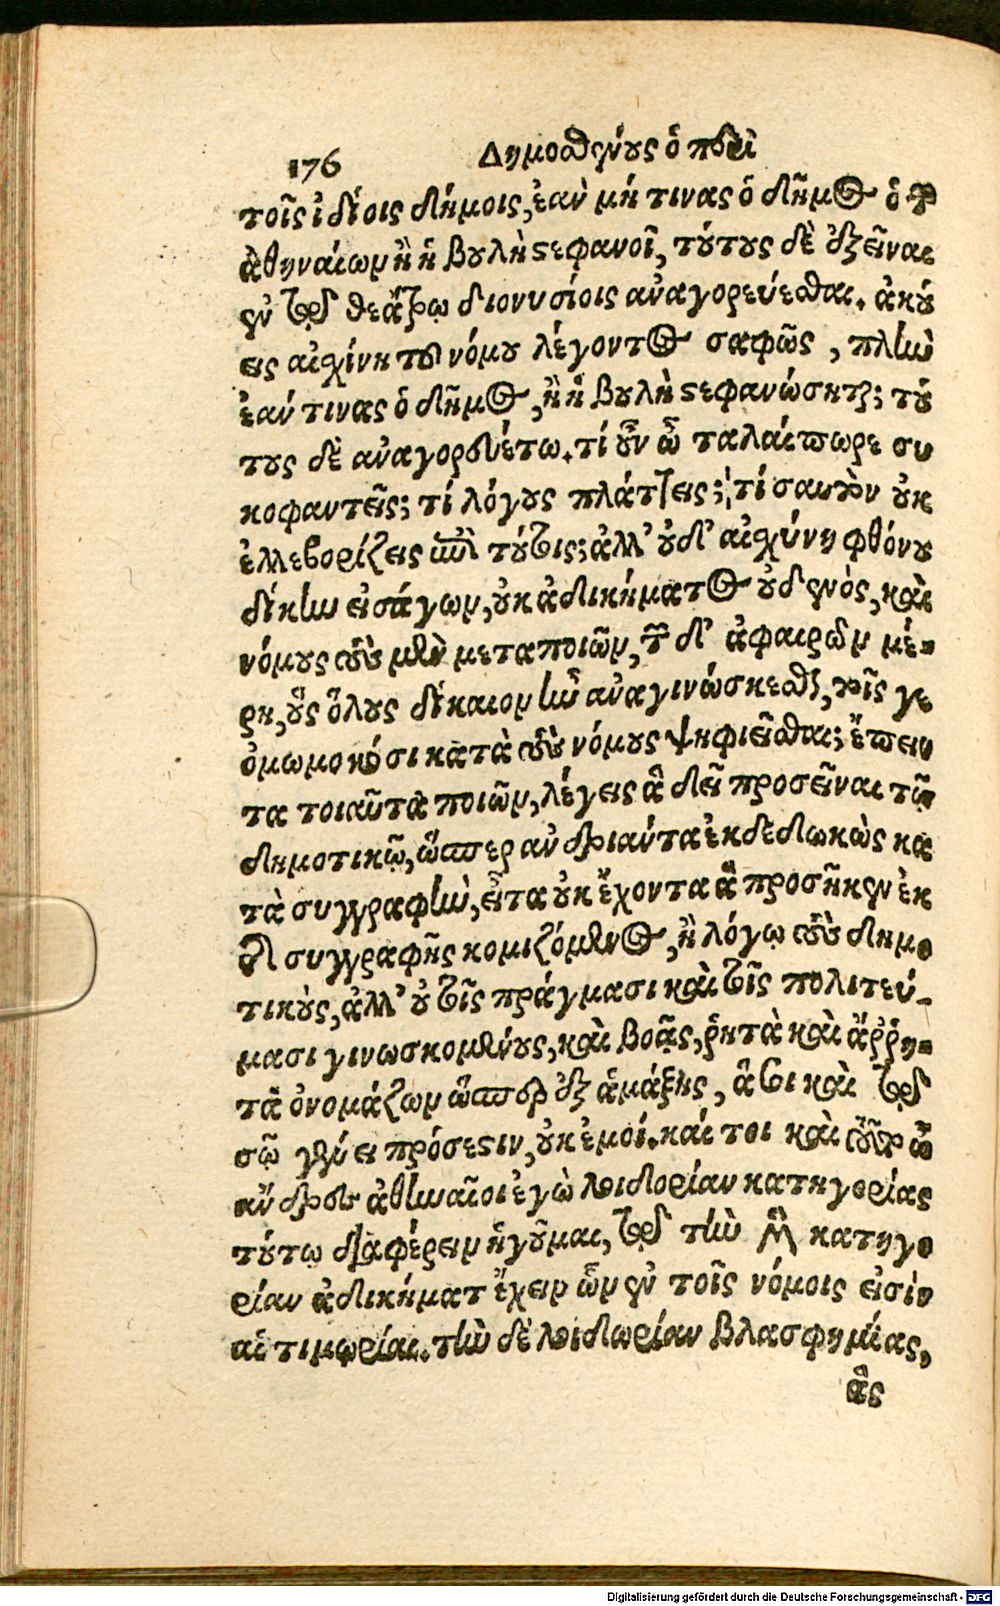 176 Δημοσθένους ὁ περὶ
τοῖς ἰδίοις δήμοις, ἐὰν μή τινας ὁ δῆμος ὁ τῶν
ἀθηναίων ἢ ἡ βουλὴ στεφανοῖ, τούτους δὲ ἐξεῖναι
ἐν τῷ θεάτρῳ διονυσίοις ἀναγορεύεσθαι. ἀκού
εις αἰσχίνη τοῦ νόμου λέγοντος σαφῶς, πλὴν
ἐάν τινας ὁ δῆμος, ἢ ἡ βουλὴ στεφανώσηται; τού
τους δὲ ἀναγορευέτω. τί οὖν ὦ ταλαίπωρε συ
κοφαντεῖς; τί λόγους πλάττεις; τί σαυτὸν οὐκ
ἐλλεβορίζεις ἐπὶ τούτοις; ἀλλ' οὐδ' αἰσχύνῃ φθόνου
δίκην εἰσάγων, οὐκ ἀδικήματος οὐδενὸς, καὶ
νόμους τοὺς μὲν μεταποιῶν, τῶν δ' ἀφαιρῶν μέ-
ρη, οὓς ὅλους δίκαιον ἦν ἀναγινώσκεσθαι, τοῖς γε
ὀμωμοκόσι κατὰ τοὺς νόμους ψηφιεῖσθαι; ἔπει
τα τοιαῦτα ποιῶν, λέγεις ἃ δεῖ προσεῖναι τῷ
δημοτικῷ, ὥσπερ ἀνδριάντα ἐκδεδωκὼς κα
τὰ συγγραφὴν, εἶτα οὐκ ἔχοντα ἃ προσῆκεν ἐκ
τῆς συγγραφῆς κομιζόμενος, ἢ λόγῳ τοὺς δημο
τικοὺς, ἀλλ' οὐ τοῖς πράγμασι καὶ τοῖς πολιτεύ-
μασι γινωσκομένους, καὶ βοᾷς, ῥητὰ καὶ ἄῤῥη-
τα ὀνομάζων ὥσπερ ἐξ ἁμάξης, ἅ σοι καὶ τῷ
σῷ γένει πρόσεστιν, οὐκ ἐμοί. καί τοι καὶ τοῦτο ὦ
ἄνδρες ἀθηναῖοι ἐγὼ λοιδορίαν κατηγορίας
τούτῳ διαφέρειν ἡγοῦμαι, τῷ τὴν μὲν κατηγο
ρίαν ἀδικήματ ἔχειν ὧν ἐν τοῖς νόμοις εἰσὶν
αἱ τιμωρίαι. τὴν δὲ λοιδωρίαν βλασφημίας,
ἃς
Digitalisierung gefördert durch die Deutsche Forschungsgemeinschaft - DFG